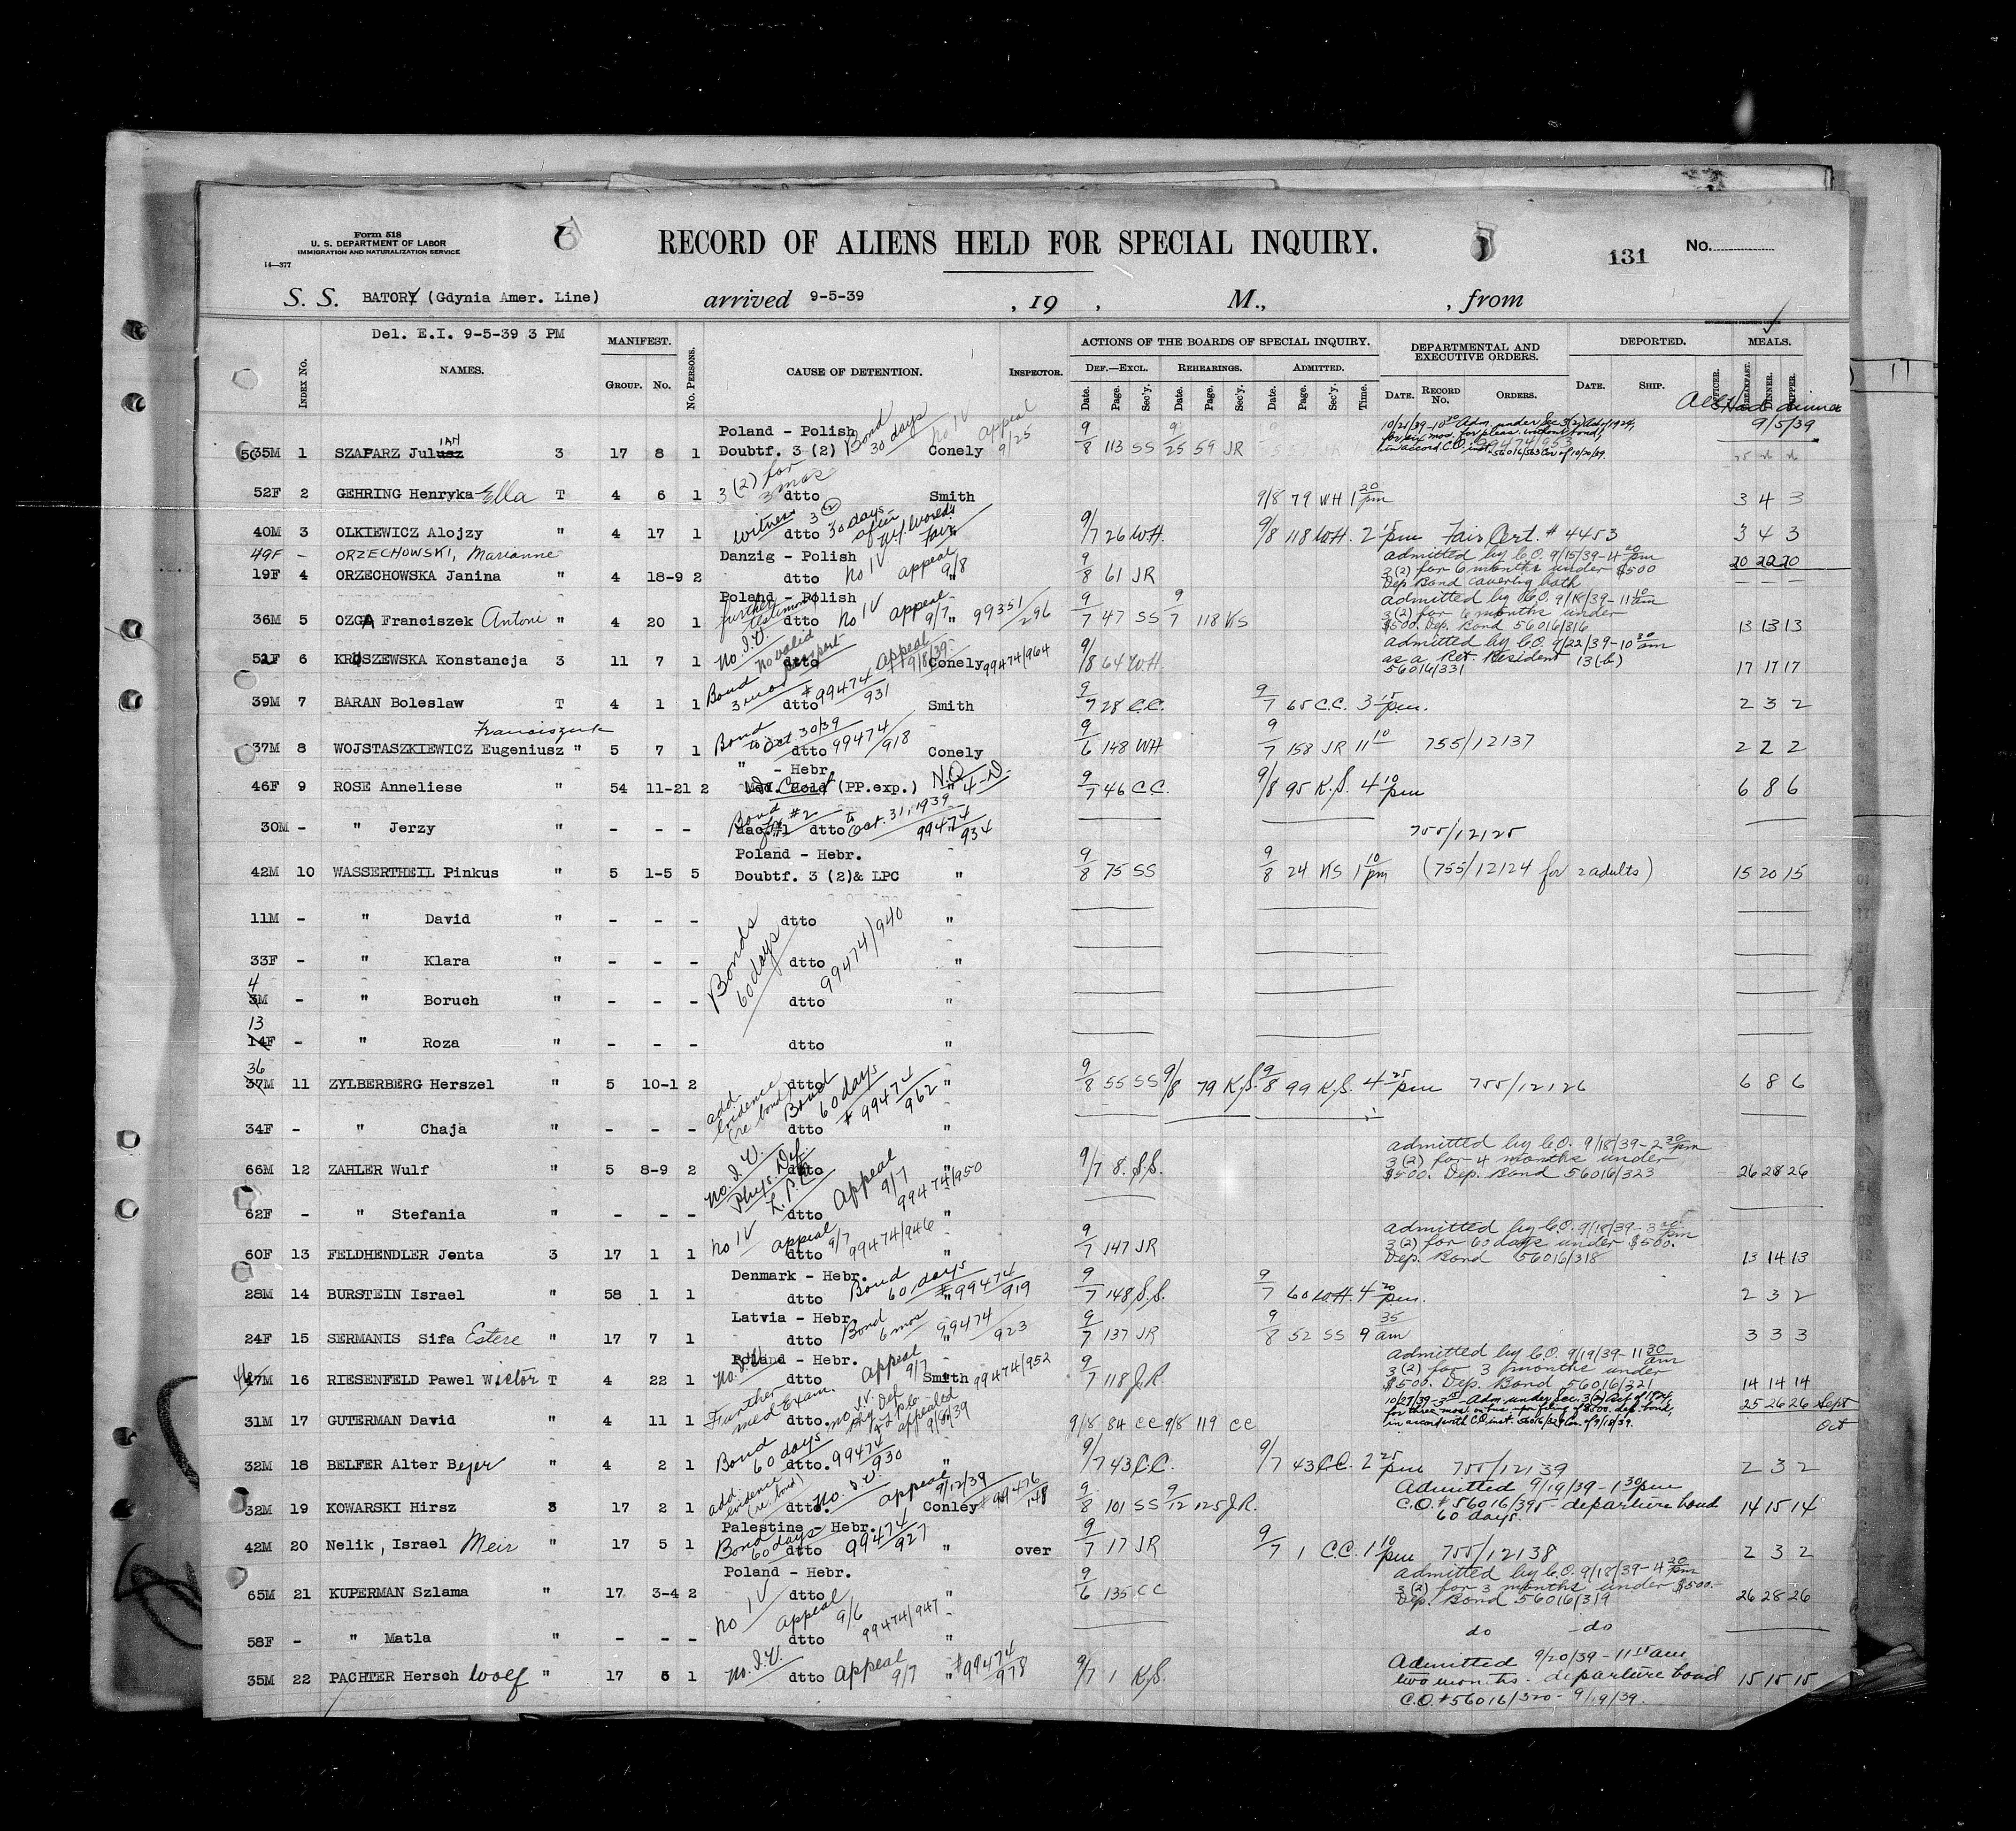 Form 518
U. S. DEPARTMENT OF LABOR
IMMIGRATION AND NATURALIZATION SERVICE
14—377
RECORD OF ALIENS HELD FOR SPECIAL INQUIRY.
131
No.
S. S. BATORY (Gdynia Amer. Line) arrived 9-5-39 , 19 , M., , from
Del. E.I. 9-5-39 3 PM
Index No. NAMES. MANIFEST. Group. No. No. Persons. CAUSE OF DETENTION. Inspector.
ACTIONS OF THE BOARDS OF SPECIAL INQUIRY. Def.—Excl. Rehearings. Admitted.
Date. Page. Sec'y. Date. Page. Sec'y. Date. Page. Sec'y. Time.
DEPARTMENTAL AND EXECUTIVE ORDERS. Date. Record No. Orders.
DEPORTED. Date. Ship. Officer. MEALS. Breakfast. Dinner. Supper.
All Had dinner
9/5/39
Poland - Polish
35M 1 SZAPARZ Julian 3 17 8 1 Doubtf. 3 (2) Bond 30 days No IV Appeal 9/25 Conely 9/8 113 SS 9/25 59 JR
10/21/39 - 10 30 Adm. under Sec 3(2) Act of 1924,
for six mos. for pleas. without bond,
52F 2 GEHRING Henryka Ella T 4 6 1 3 (2) for 3 mos dtto Smith 9/8 79 WH 1 20 pm 3 4 3
40M 3 OLKIEWICZ Alojzy " 4 17 1 witness 3 (2) dtto 30 days after N.Y. World's Fair " 9/7 26 W.H. 9/8 118 W.H. 2 15 pm Fair Cert. # 4453 3 4 3
49F - ORZECHOWSKI, Marianne Danzig - Polish
19F 4 ORZECHOWSKA Janina " 4 18-9 2 dtto No IV appeal 9/8 " 9/8 61 JR
admitted by C.O. 9/15/39 - 4 20 pm
3(2) for 6 months under $500
Dep Bond covering both
20 22 20
Poland - Polish
36M 5 OZGA Franciszek Antoni " 4 20 1 further testimony dtto No IV appeal 9/7 " 99351/296 9/7 47 SS 9/7 118 KS
admitted by C.O. 9/18/39 - 11 10 am
3(2) for 6 months under
$500. Dep. Bond 56016/316
13 13 13
52F 6 KROSZEWSKA Konstancja 3 11 7 1 No. I.V. no valid passport dtto appeal 9/8/39 Conely 99474/964 9/8 64 W.H.
admitted by C.O. 9/22/39 - 10 30 am
as a Ret. Resident 13(b)
56016/331
17 17 17
39M 7 BARAN Boleslaw T 4 1 1 Bond 3 mos dtto #99474/931 Smith 9/7 28 C.C. 9/7 65 C.C. 3 15 pm. 2 3 2
Franciszek
37M 8 WOJSTASZKIEWICZ Eugeniusz " 5 7 1 Bond to Oct. 30/39 dtto 99474/918 Conely 9/6 148 WH 9/7 158 JR 11 10 755/12137 2 2 2
" - Hebr
46F 9 ROSE Anneliese " 54 11-21 2 Med. Hold (PP.exp.) " 9/7 46 C.C. 9/8 95 K.S. 4 10 pm 6 8 6
30M - " Jerzy " - - - Bond for #2 dtto to Oct. 31, 1939 99474/934 755/12125
Poland - Hebr.
42M 10 WASSERTHEIL Pinkus " 5 1-5 5 Doubtf. 3 (2)& LPC " 9/8 75 SS 9/8 24 KS 1 10 pm (755/12124 for 2 adults) 15 20 15
11M - " David " - - - dtto "
33F - " Klara " - - - Bonds 60 days dtto 99474/940 "
4
3M - " Boruch " - - - dtto "
13
14F - " Roza " - - - dtto "
36
37M 11 ZYLBERBERG Herszel " 5 10-1 2 add. evidence (re bond) dtto Bond 60 days # 99474/962 " 9/8 55 SS 9/8 79 K.S. 9/8 99 K.S. 4 25 pm 755/12126 6 8 6
34F - " Chaja " - - - dtto "
66M 12 ZAHLER Wulf " 5 8-9 2 No. I.V. Phys. Def. L.P.C. dtto Appeal 9/7 99474/950 " 9/7 8 S.S.
admitted by C.O. 9/18/39 - 2 30 pm
3(2) for 4 months under
$500. Dep. Bond 56016/323
26 28 26
62F - " Stefania " - - - dtto "
60F 13 FELDHENDLER Jenta 3 17 1 1 No IV appeal 9/7 dtto 99474/946 " 9/7 147 JR
admitted by C.O. 9/18/39 - 3 30 pm
3(2) for 60 days under $500.
Dep. Bond 56016/318
13 14 13
Denmark - Hebr.
28M 14 BURSTEIN Israel " 58 1 1 dtto Bond 60 days #99474/919 " 9/7 148 S.S. 9/7 60 W.H. 4 20 pm. 2 3 2
Latvia - Hebr.
24F 15 SERMANIS Sifa Estere " 17 7 1 dtto Bond 6 mos 99474/923 " 9/7 137 JR 9/8 52 SS 9 35 am 3 3 3
Poland - Hebr.
46 47M 16 RIESENFELD Pawel Wictor T 4 22 1 No. I.V. dtto Appeal 9/7 Smith 99474/952 9/7 118 J.R.
Admitted by C.O. 9/19/39 - 11 30 am
3(2) for 3 months under
$500. Dep. Bond 56016/321
14 14 14
31M 17 GUTERMAN David " 4 11 1 Further med Exam. dtto. no I.V. Phy Def + L.P.C. appealed 9/8/39 9/8 84 CC 9/8 119 CC
10/27/39 - 3 15 Adm. under Sec. 3(2) Act of 1924,
25 26 26 Sept
Oct
32M 18 BELFER Alter Bejer " 4 2 1 Bond 60 days dtto. 99474/930 " 9/7 43 C.C. 9/7 43 C.C. 2 25 pm 755/12139 2 3 2
32M 19 KOWARSKI Hirsz 3 17 2 1 add. evidence (re bond) dtto. No. I.V. appeal 9/12/39 Conley #99476/148 9/8 101 SS 9/12 125 J.R.
Admitted 9/19/39 - 1 30 pm
C.O. # 56016/395 - departure bond
60 days.
14 15 14
Palestine - Hebr.
42M 20 Nelik, Israel Meir " 17 5 1 Bond 60 days dtto 99474/927 " over 9/7 17 JR 9/7 1 C.C. 1 10 pm 755/12138 2 3 2
Poland - Hebr.
65M 21 KUPERMAN Szlama " 17 3-4 2 No IV dtto appeal 9/6 99474/947 " 9/6 135 CC
admitted by C.O. 9/18/39 - 4 20 pm
3(2) for 3 months under $500.-
Dep. Bond 56016/319
26 28 26
58F - " Matla " - - - dtto " do - do
35M 22 PACHTER Hersch Wolf " 17 6 1 No. I.V. dtto Appeal 9/7 " #99474/978 9/7 1 K.S.
Admitted 9/20/39 - 11 15 am
two months - departure bond
C.O. #56016/320 - 9/19/39.
15 15 15